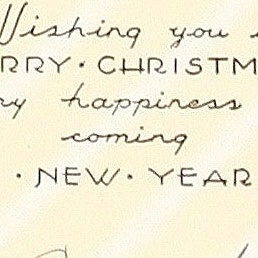 Wishing you
RRY · CHRISTM
ry happiness
coming
· NEW · YEAR